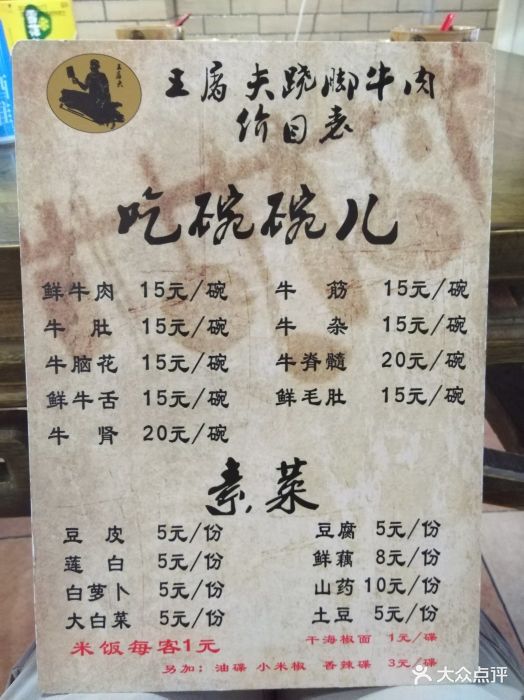 王腐夫跷脚牛肉
价目表
吃碗碗儿
鲜牛肉 15元/碗 牛筋 15元/碗
牛肚 15元/碗 牛杂 15元/碗
牛脑花 15元/碗 牛脊髓 20元/碗
鲜牛舌 15元/碗 鲜毛肚 15元/碗
牛肾 20元/碗
素菜
豆皮 5元/份 豆腐 5元/份
莲白 5元/份 鲜藕 8元/份
白萝卜 5元/份 山药 10元/份
大白菜 5元/份 土豆 5元/份
米饭每客1元 干海椒面 1元/碟
另加；油碟 小米椒 香辣碟 3元/碟
大众点评